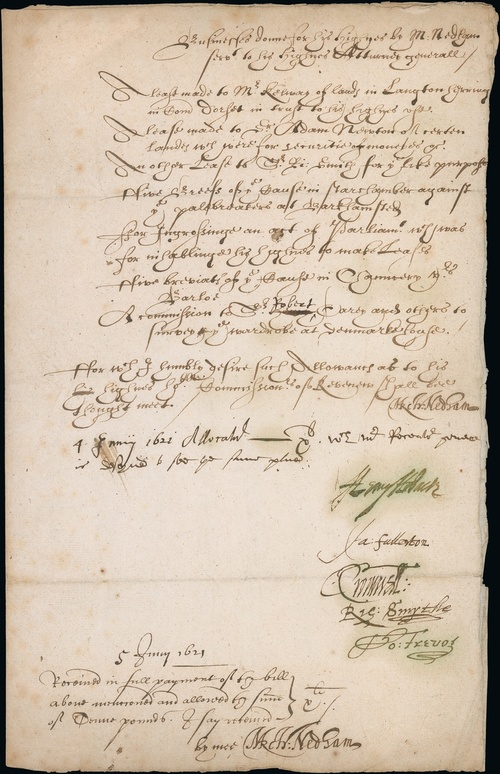 Businesses donne for his highnes by M. Nedham
serv.t to his highnes Atturney generall /
A lease made to M.r Kelway of lands in Langton herring
in Com Dorset in trust to his highnes use.
A lease made to S.r Adam Newton of certen
landes w.ch were for securitie of moneyes &c.
An other Lease to S.r Ri: Smith for y.e like purpose
ffive Breefs of y.e Cause in Starchamber against
y.e palebreakers at Barkhamsted
ffor Ingrossinge an act of Parliam.t w.ch was
for inhablinge his highnes to make Leases
ffive breviats of y.e Cause in Chancery
Barloe
A commission to S.r Robert Carey and others to
survey y.e wardrobe at denmarke house.
ffor w.ch I humbly desire such Allowance as to his
highnes Commission.rs of Revenew shall bee
thought meet.
Mich: Nedham
4 Junij 1621 Allocatur
is to see
Ja: fullerton
Ric: Smythe
Jo: Trevor
5 Junij 1621
Receined in full payment of this bill
above mencioned and allowed the sume
of Tenne pounds. I say receined
by mee Mich: Nedham